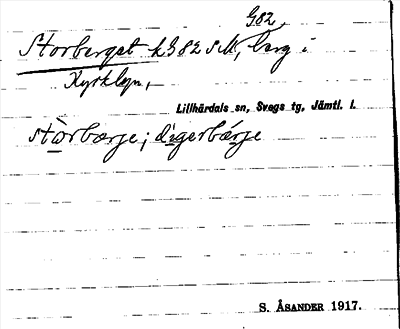 G82,
Storberget k G 82 SM, berg i
Kyrkbyn,
Lillhärdals sn, Svegs tg, Jämtl. l.
stòrbærje; digerbǽrje
S. ÅSANDER 1917.